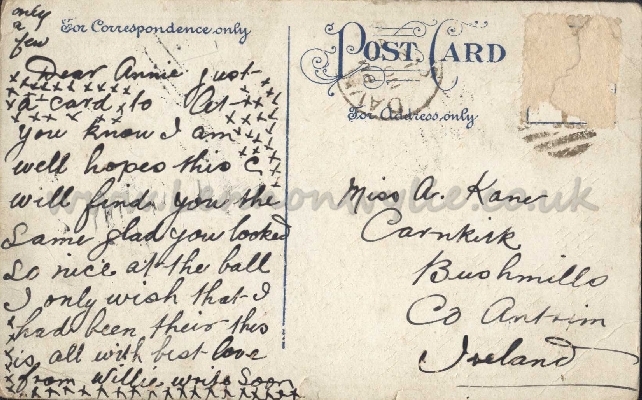 only
a
few
For Correspondence only
POST CARD
For Address only
Dear Annie just
a card to let
you know I am
well hopes this
will find you the
same glad you looked
so nice at the ball
I only wish that I
had been their this
is all with best love
from Willie write soon
Miss A. Kane
Carnkirk
Bushmills
Co Antrim
Ireland